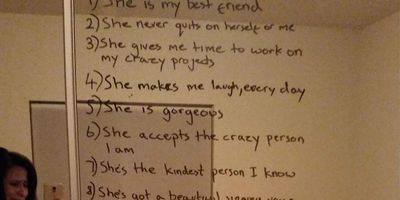 1) She is my best friend
2) She never quits on herself or me
3) She gives me time to work on
my crazy projects
4) She makes me laugh, every day
5) She is gorgeous
6) She accepts the crazy person
I am
7) She's the kindest person I know
8) She's got a beautiful